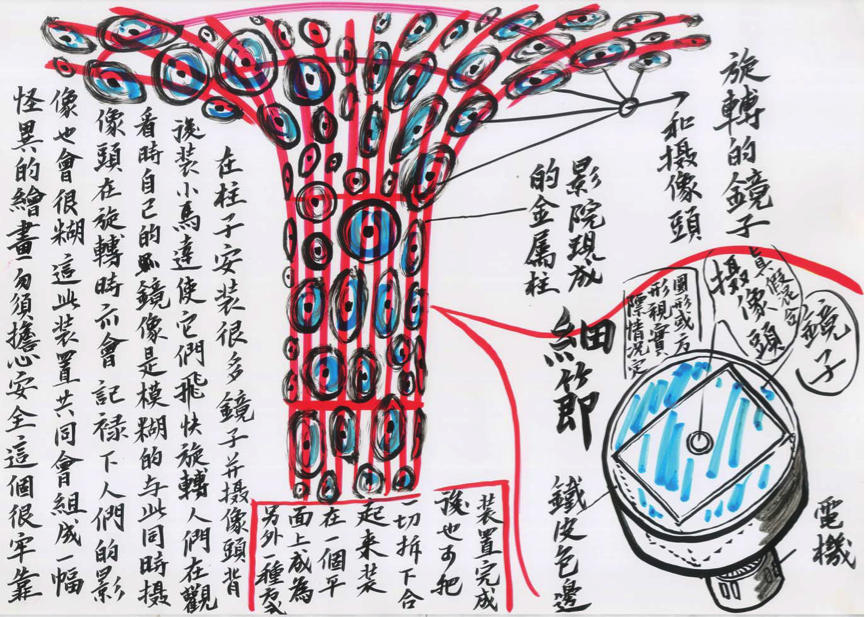 旋轉的鏡子
和摄像頭
影院現成
的金属柱
在柱子安装很多鏡子并摄像頭背
後装小馬達使它們飛快旋轉人們在觀
看時自己的鏡像是模糊的与此同時摄
像頭在旋轉時亦會記禄下人們的影
像也會很糊這些装置共同會組成一幅
怪異的繪畫勿須擔心安全這個很牢靠
細節
鏡子
真假混合
摄像頭
圓形或方
形視實
際情况定
電機
鐵皮包邊
装置完成
後也可把
一切拆下合
起来装
在一個平
面上成為
另外一種